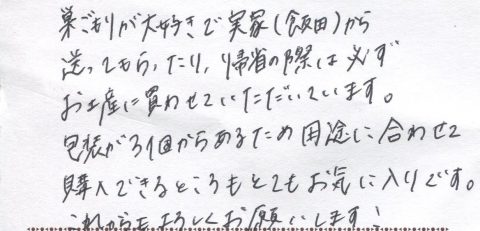 巣ごもりが大好きで実家(飯田)から
送ってもらったり、帰省の際は必ず
お土産に買わせていただいています。
包装が31個からあるため用途に合わせて
購入できるところもとてもお気に入りです。
これからもよろしくお願いします!